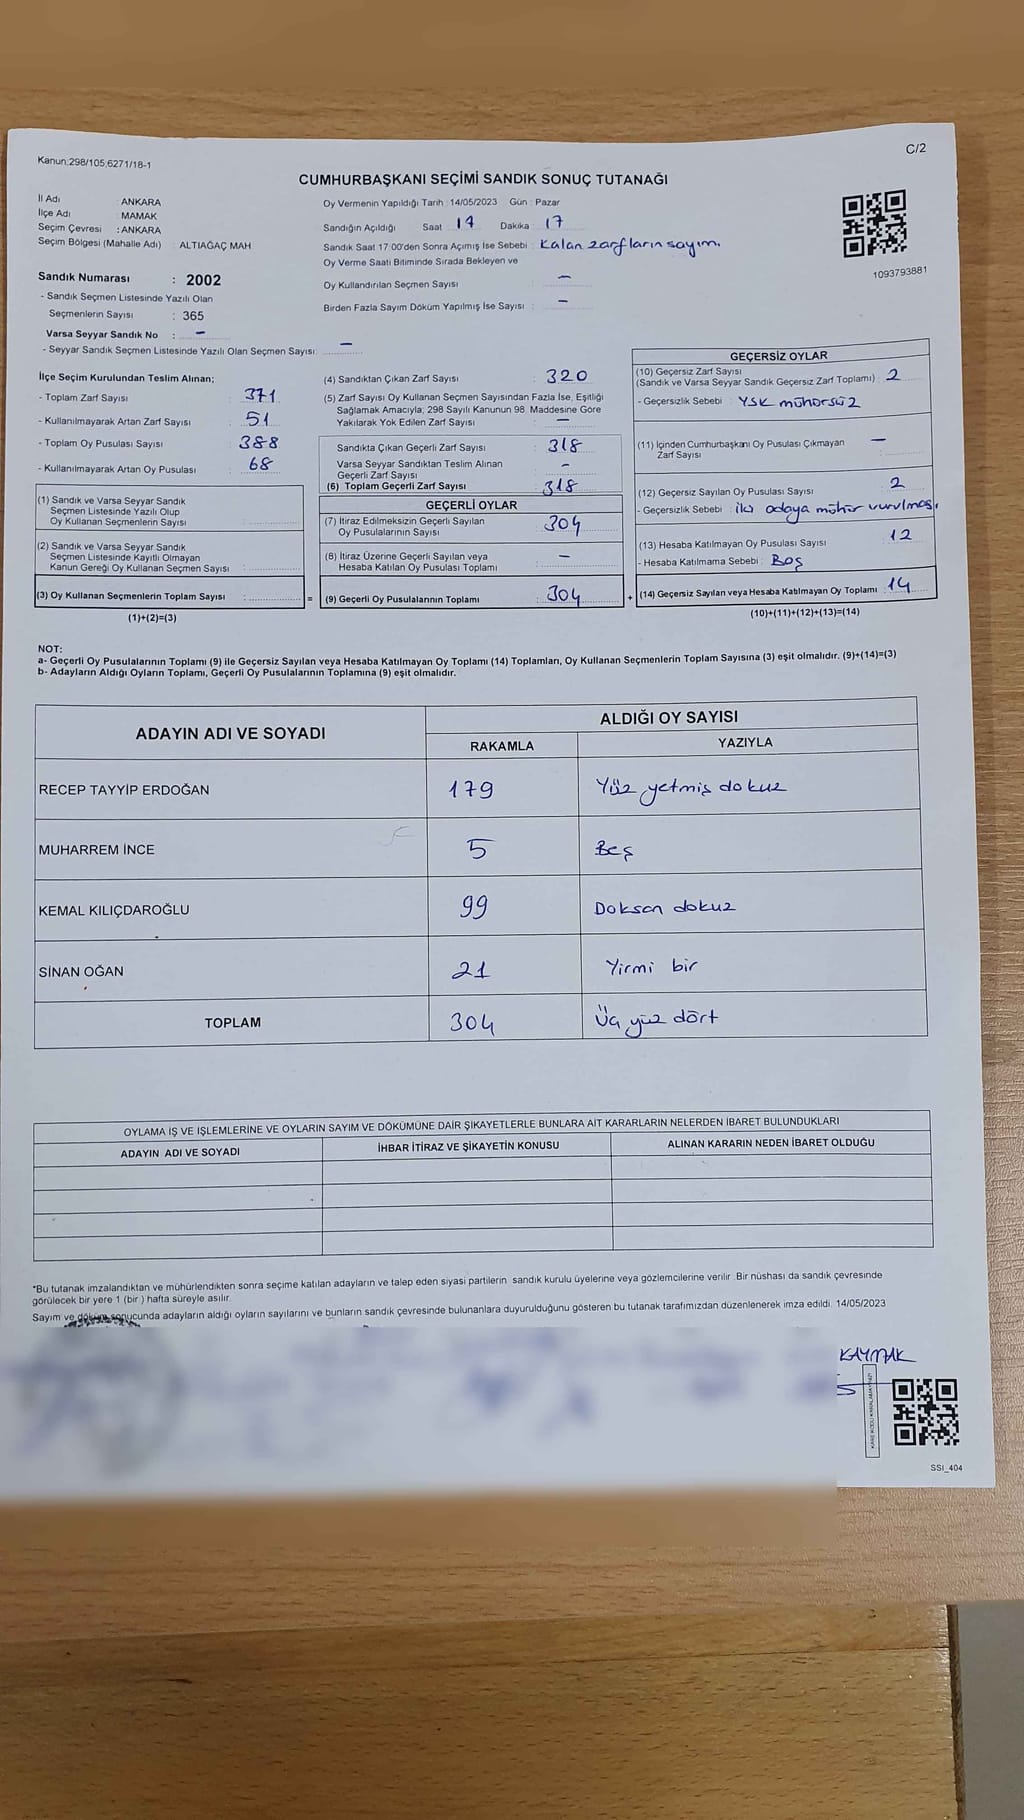 Kanun:298/105,6271/18-1
C/2
CUMHURBAŞKANI SEÇİMİ SANDIK SONUÇ TUTANAĞI
İl Adı : ANKARA
İlçe Adı : MAMAK
Seçim Çevresi : ANKARA
Seçim Bölgesi (Mahalle Adı) : ALTIAĞAÇ MAH
Sandık Numarası : 2002
- Sandık Seçmen Listesinde Yazılı Olan
Seçmenlerin Sayısı : 365
Varsa Seyyar Sandık No : –
- Seyyar Sandık Seçmen Listesinde Yazılı Olan Seçmen Sayısı: –
Oy Vermenin Yapıldığı Tarih : 14/05/2023 Gün : Pazar
Sandığın Açıldığı Saat : 17 Dakika : 17
Sandık Saat 17:00'den Sonra Açımış İse Sebebi : Kalan zarfların sayım.
Oy Verme Saati Bitiminde Sırada Bekleyen ve
Oy Kullandırılan Seçmen Sayısı : –
Birden Fazla Sayım Döküm Yapılmış İse Sayısı : –
1093793881
İlçe Seçim Kurulundan Teslim Alınan;
- Toplam Zarf Sayısı : 371
- Kullanılmayarak Artan Zarf Sayısı : 51
- Toplam Oy Pusulası Sayısı : 388
- Kullanılmayarak Artan Oy Pusulası : 68
(1) Sandık ve Varsa Seyyar Sandık
Seçmen Listesinde Yazılı Olup
Oy Kullanan Seçmenlerin Sayısı :
(2) Sandık ve Varsa Seyyar Sandık
Seçmen Listesinde Kayıtlı Olmayan
Kanun Gereği Oy Kullanan Seçmen Sayısı :
(3) Oy Kullanan Seçmenlerin Toplam Sayısı : =
(1)+(2)=(3)
(4) Sandıktan Çıkan Zarf Sayısı : 320
(5) Zarf Sayısı Oy Kullanan Seçmen Sayısından Fazla İse, Eşitliği
Sağlamak Amacıyla, 298 Sayılı Kanunun 98. Maddesine Göre
Yakılarak Yok Edilen Zarf Sayısı : –
Sandıkta Çıkan Geçerli Zarf Sayısı : 318
Varsa Seyyar Sandıktan Teslim Alınan
Geçerli Zarf Sayısı : –
(6) Toplam Geçerli Zarf Sayısı : 318
GEÇERLİ OYLAR
(7) İtiraz Edilmeksizin Geçerli Sayılan
Oy Pusulalarının Sayısı : 304
(8) İtiraz Üzerine Geçerli Sayılan veya
Hesaba Katılan Oy Pusulası Toplamı : –
(9) Geçerli Oy Pusulalarının Toplamı : 304 +
GEÇERSİZ OYLAR
(10) Geçersiz Zarf Sayısı
(Sandık ve Varsa Seyyar Sandık Geçersiz Zarf Toplamı) : 2
- Geçersizlik Sebebi : YSK mühürsüz
(11) İçinden Cumhurbaşkanı Oy Pusulası Çıkmayan
Zarf Sayısı : –
(12) Geçersiz Sayılan Oy Pusulası Sayısı : 2
- Geçersizlik Sebebi : iki adaya mühür vurulması
(13) Hesaba Katılmayan Oy Pusulası Sayısı : 12
- Hesaba Katılmama Sebebi : Boş
(14) Geçersiz Sayılan veya Hesaba Katılmayan Oy Toplamı : 14
(10)+(11)+(12)+(13)=(14)
NOT:
a- Geçerli Oy Pusulalarının Toplamı (9) ile Geçersiz Sayılan veya Hesaba Katılmayan Oy Toplamı (14) Toplamları, Oy Kullanan Seçmenlerin Toplam Sayısına (3) eşit olmalıdır. (9)+(14)=(3)
b- Adayların Aldığı Oyların Toplamı, Geçerli Oy Pusulalarının Toplamına (9) eşit olmalıdır.
ADAYIN ADI VE SOYADI
ALDIĞI OY SAYISI
RAKAMLA YAZIYLA
RECEP TAYYİP ERDOĞAN 179 Yüz yetmiş dokuz
MUHARREM İNCE 5 Beş
KEMAL KILIÇDAROĞLU 99 Doksan dokuz
SİNAN OĞAN 21 Yirmi bir
TOPLAM 304 Üç yüz dört
OYLAMA İŞ VE İŞLEMLERİNE VE OYLARIN SAYIM VE DÖKÜMÜNE DAİR ŞİKAYETLERLE BUNLARA AİT KARARLARIN NELERDEN İBARET BULUNDUKLARI
ADAYIN ADI VE SOYADI İHBAR İTİRAZ VE ŞİKAYETİN KONUSU ALINAN KARARIN NEDEN İBARET OLDUĞU
*Bu tutanak imzalandıktan ve mühürlendikten sonra seçime katılan adayların ve talep eden siyasi partilerin sandık kurulu üyelerine veya gözlemcilerine verilir. Bir nüshası da sandık çevresinde
görülecek bir yere 1 (bir ) hafta süreyle asılır.
Sayım ve döküm sonucunda adayların aldığı oyların sayılarını ve bunların sandık çevresinde bulunanlara duyurulduğunu gösteren bu tutanak tarafımızdan düzenlenerek imza edildi. 14/05/2023
KAYMAK
SSI_404